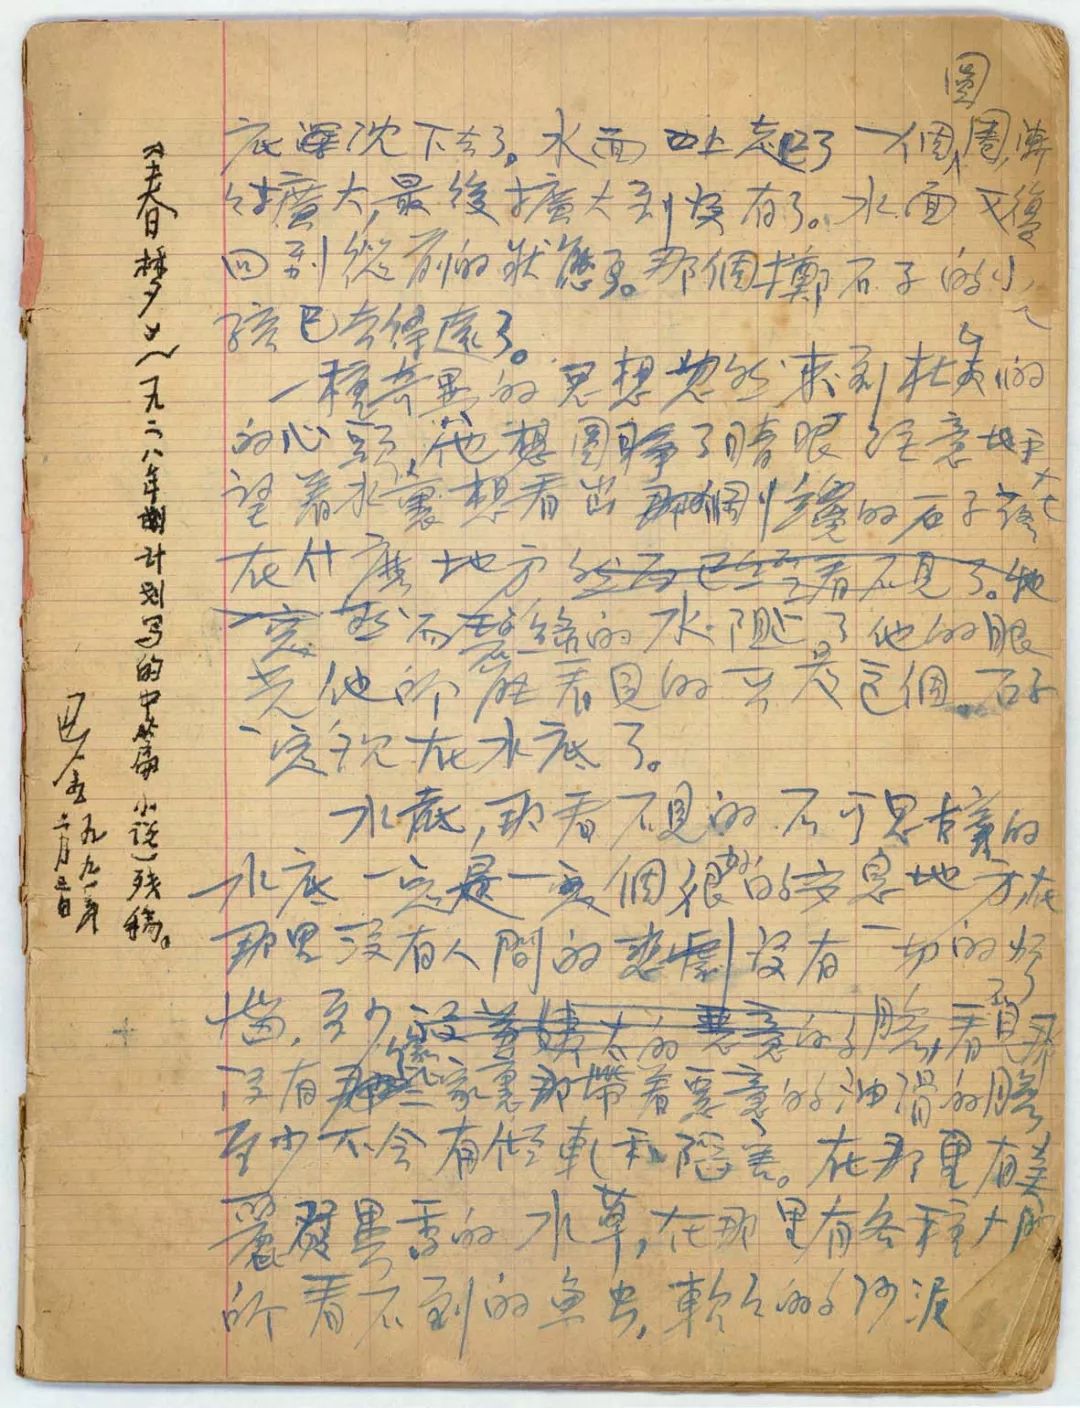 底沈下去了。水面上起了一個圓圈,漸
漸擴大,最後擴大到沒有了。水面又復
回到從前的狀態了。那個擲石子的小
孩已去得遠了。
一種奇異的思想忽然來到杜大心的
的心頭,他想圓睜了眼睛注意地
望着水裏想看出那個小的石子落
在什麼地方然而已經看不見了。他
然而碧綠的水阻止了他的眼
光他所能看見的只是這個。石子
一定沉在水底了。
水底,那看不見的不可思議的
水底一定是一個很好的安息地方在
那里沒有人間的悲劇沒有一切的
至少的惡意的臉,看見
沒有家裏那帶着惡意的油滑的臉
至少不會有傾軋和陷害。在那里有美
麗的水草,在那里有各種人間
所看不到的魚虫,軟軟的沙泥
《春梦》(一九二八年計划写的中篇小说)残稿。
巴金 一九九一年
二月三日